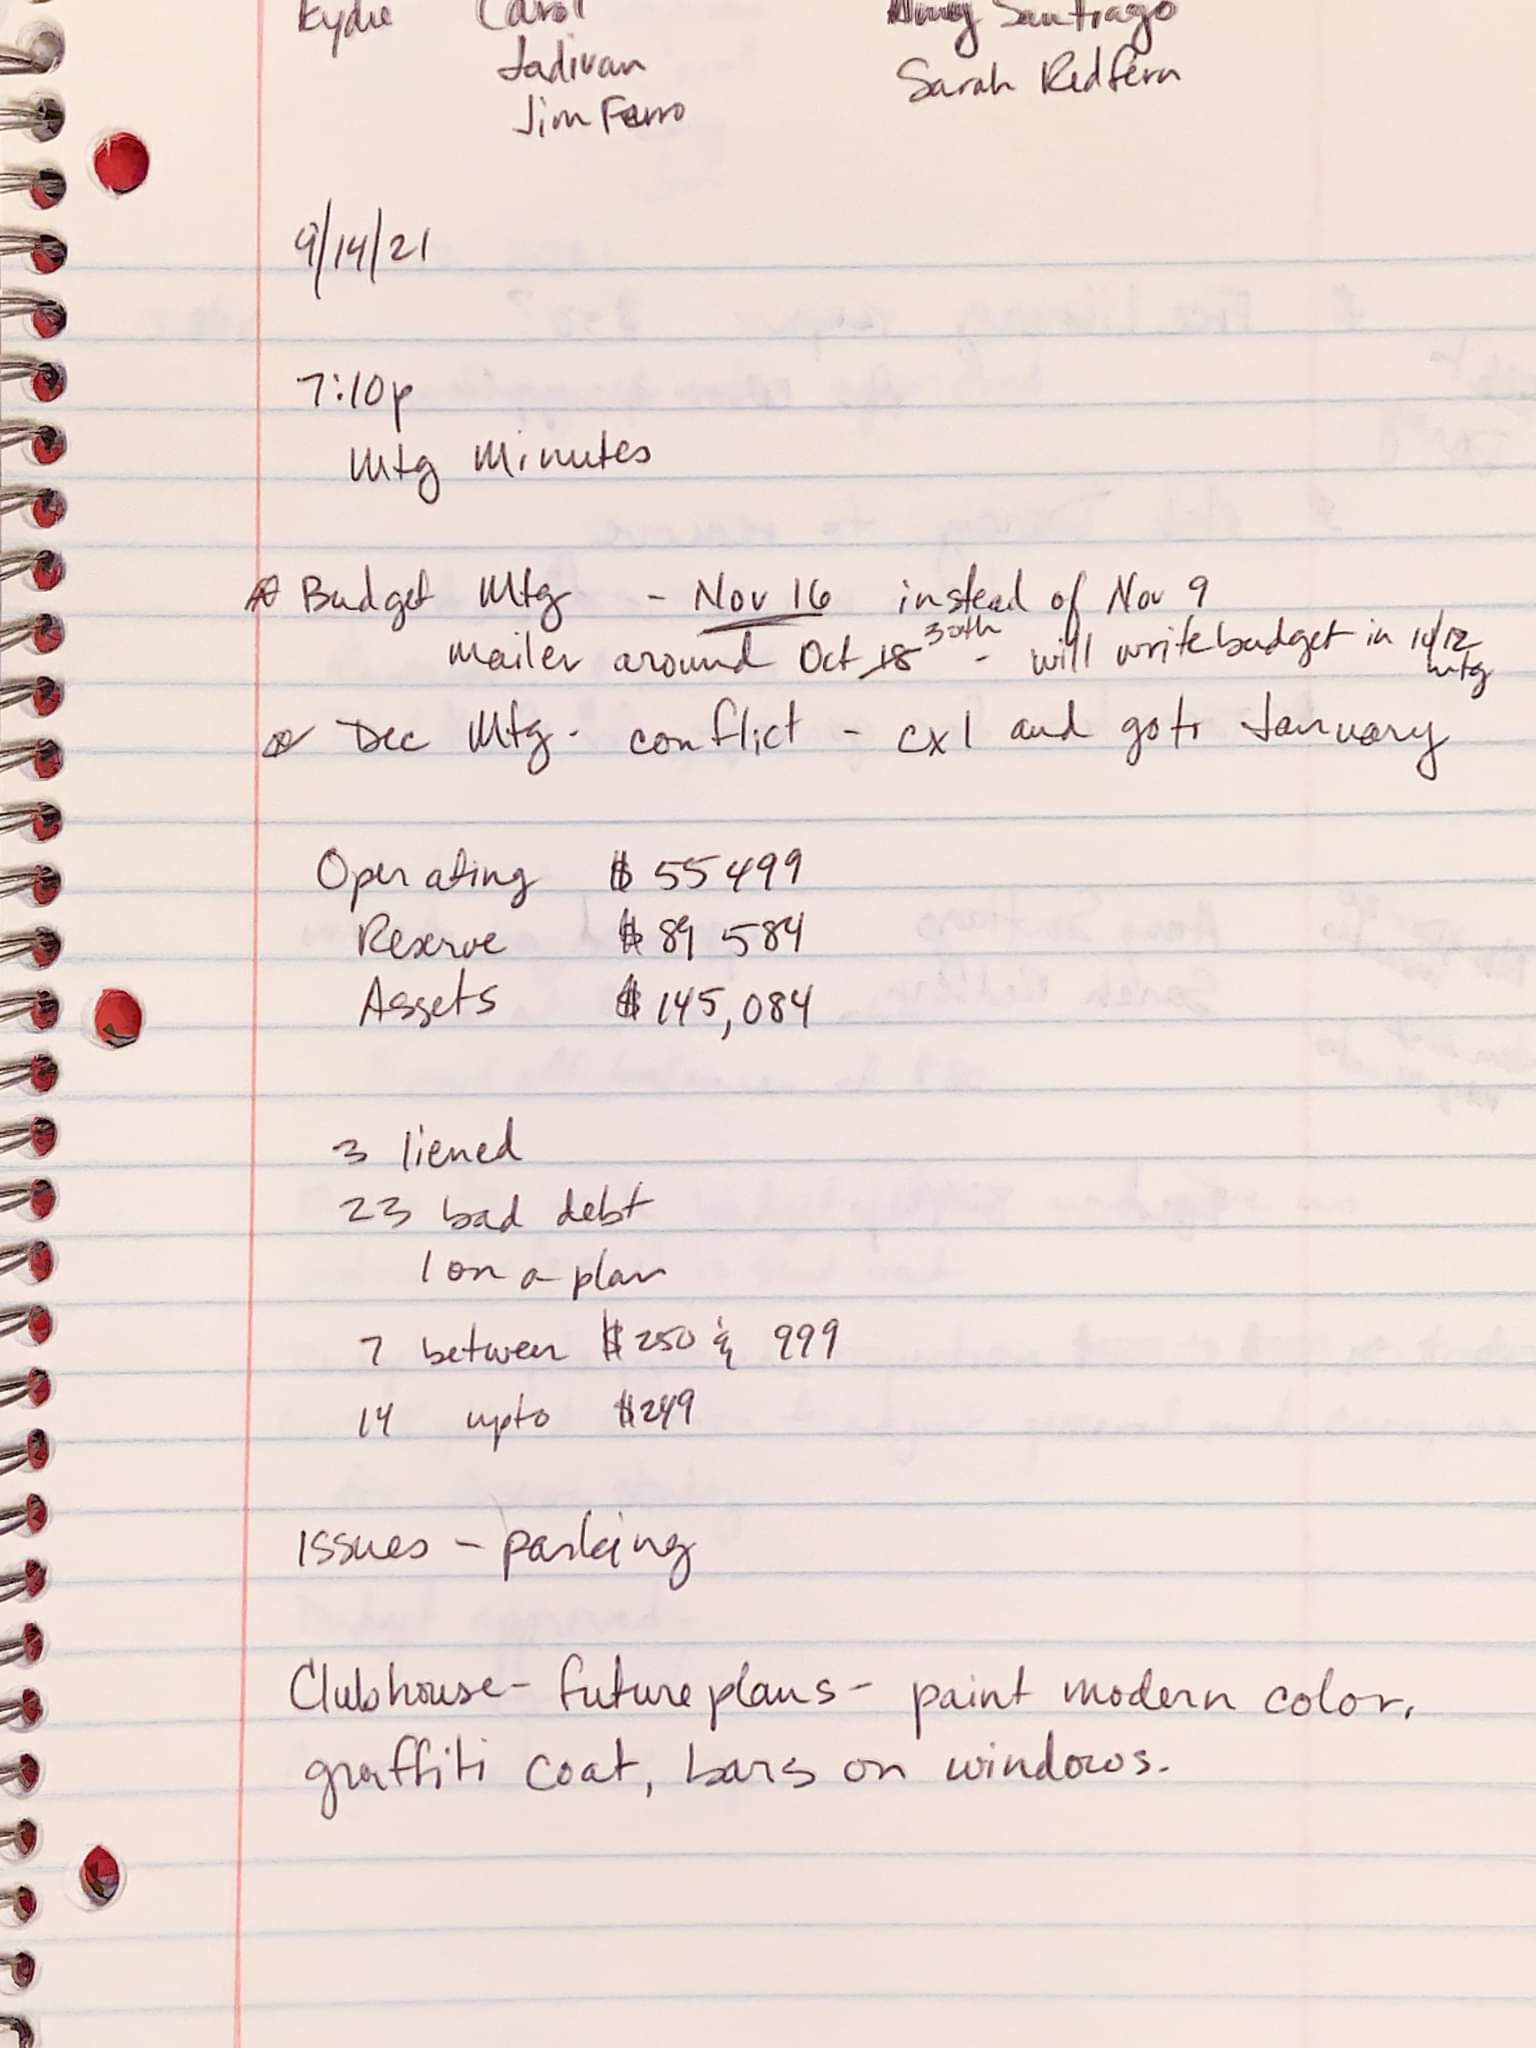 Kydie Carol Amy Santiago
Jadivan Sarah Redfern
Jim Ferro
9/14/21
7:10p
Mtg Minutes
Budget Mtg - Nov 16 instead of Nov 9
Mailer around Oct 18 30th - will write budget in 10/12 mtg
Dec Mtg - conflict - cxl and go to January
Operating $ 55499
Reserve $ 89 584
Assets $ 145,084
3 liened
23 bad debt
1 on a plan
7 between $250 & 999
14 upto $249
Issues - parking
Clubhouse - future plans - paint modern color,
graffiti coat, bars on windows.